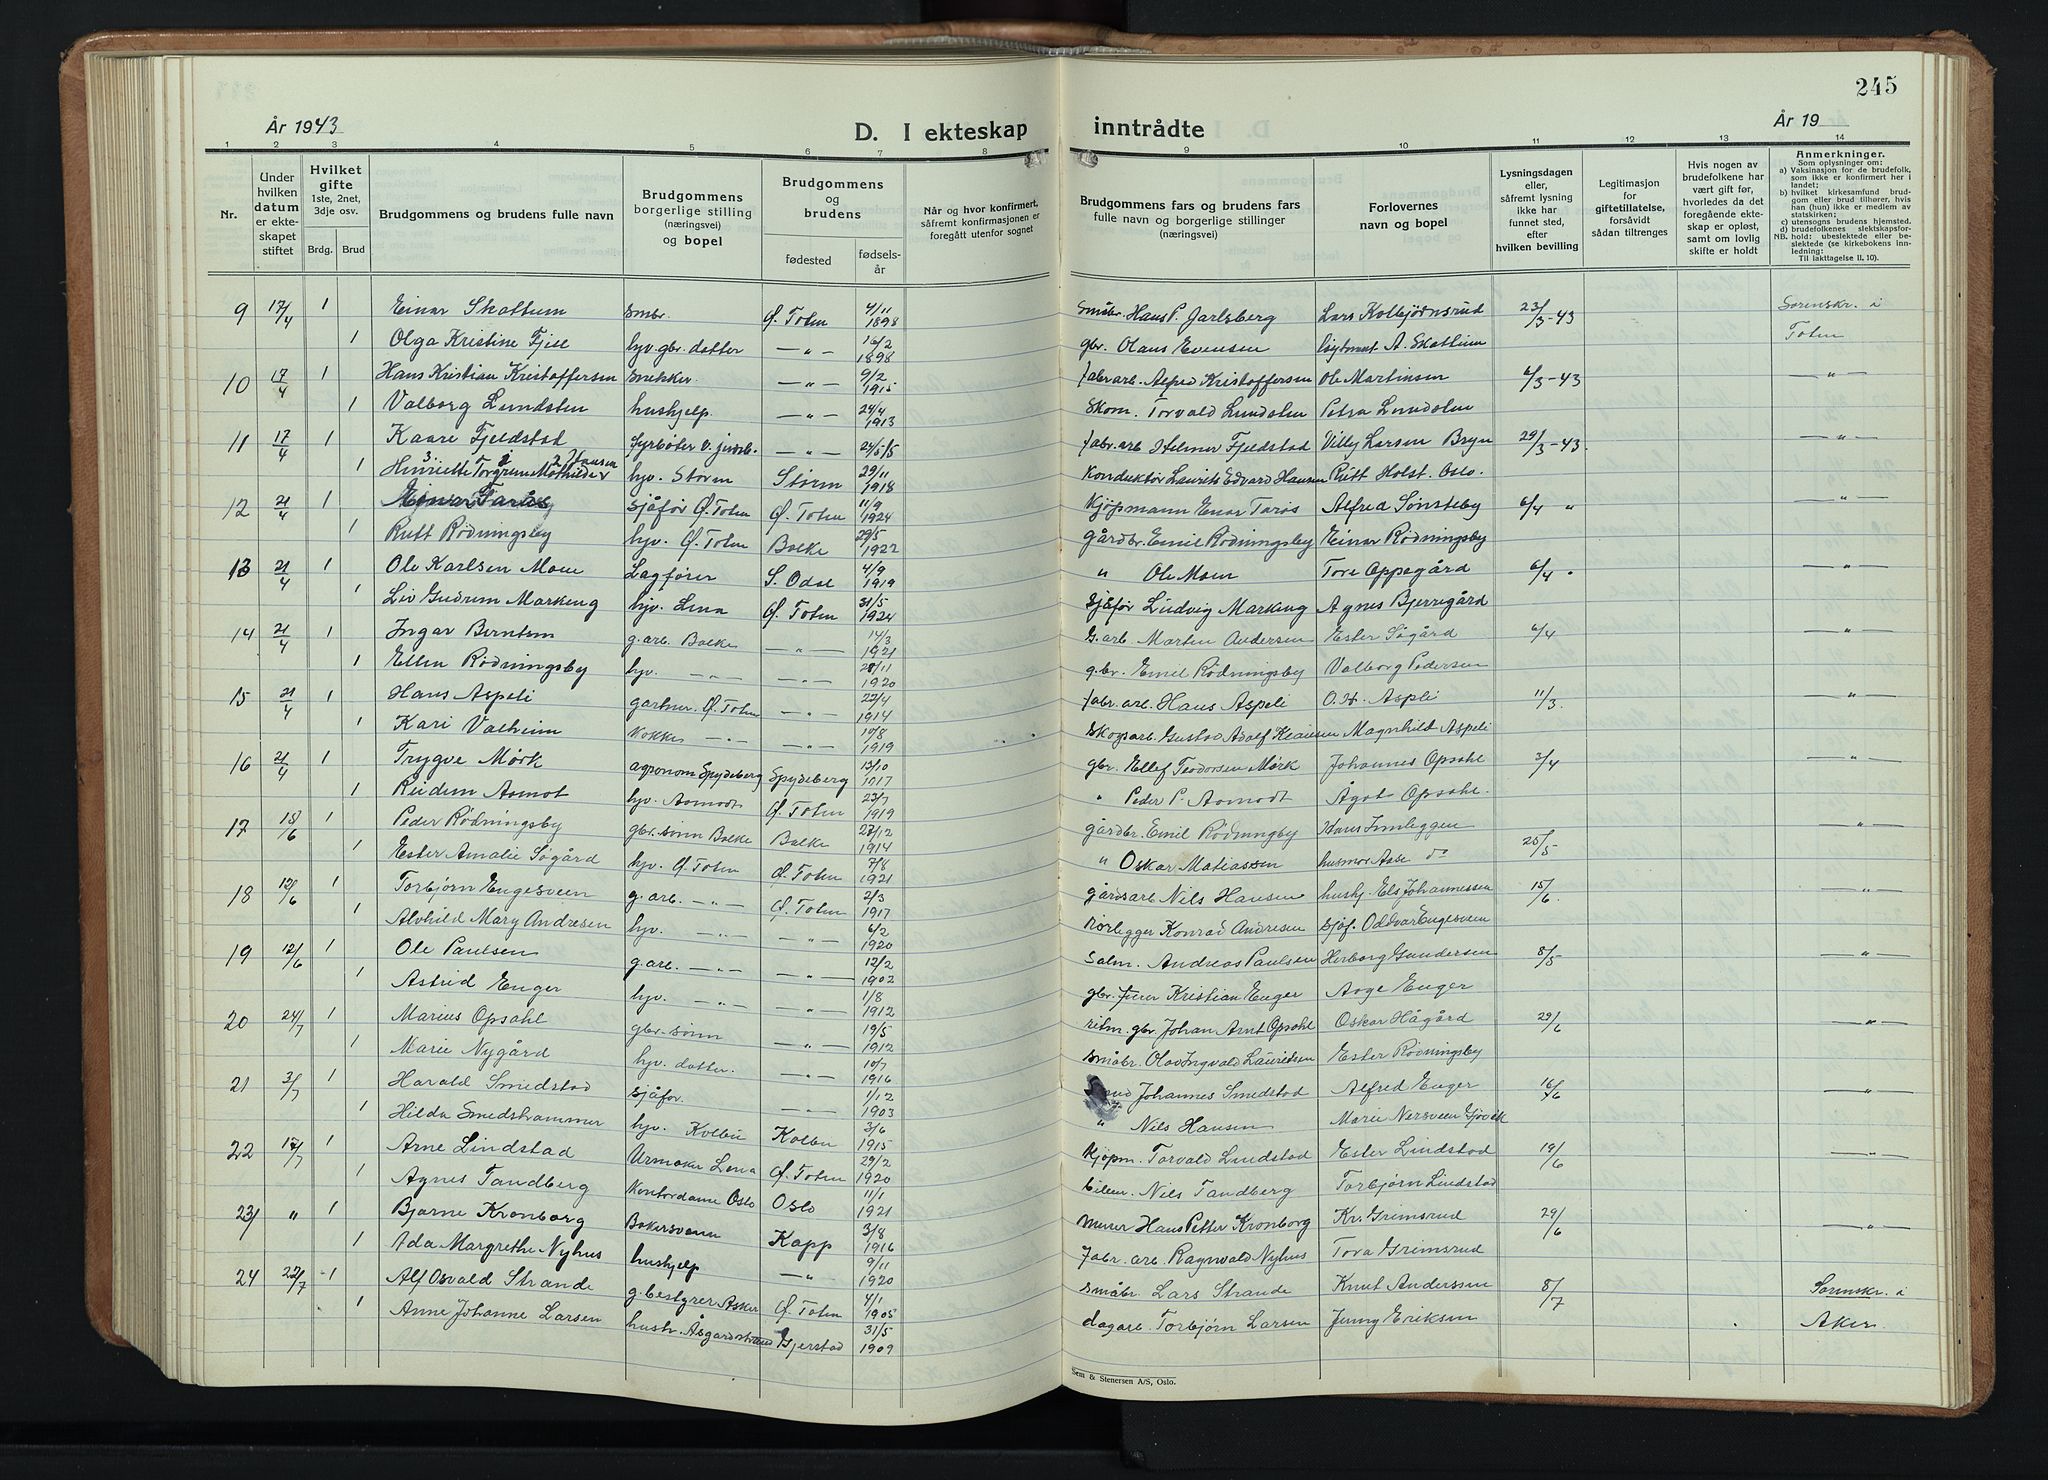 245
År 1943
D. I ekteskap inntrådte
År 19
1 2 3 4 5 6 7 8 9 10 11 12 13 14
Nr.
Under hvilken datum er ekteskapet stiftet
Hvilket gifte 1ste, 2net, 3dje osv.
Brdg. Brud
Brudgommens og brudens fulle navn
Brudgommens borgerlige stilling (næringsvei) og bopel
Brudgommens og brudens
fødested
fødselsår
Når og hvor konfirmert, såfremt konfirmasjonen er foregått utenfor sognet
Brudgommens fars og brudens fars fulle navn og borgerlige stillinger (næringsvei)
Forlovernes navn og bopel
Lysningsdagen eller, såfremt lysning ikke har funnet sted, efter hvilken bevilling
Legitimasjon for giftetillatelse, forsåvidt sådan tiltrenges
Hvis nogen av brudefolkene har vært gift før, hvorledes da det foregående ekteskap er opløst, samt om lovlig skifte er holdt
Anmerkninger.
Som oplysninger om:
a) Vaksinasjon for de brudefolk, som ikke er konfirmert her i landet;
b) hvilket kirkesamfund brudgom eller brud tilhører, hvis han (hun) ikke er medlem av statskirken;
c) utensogns brudens hjemsted.
d) brudefolkenes slektskapsforhold: ubeslektede eller beslektede (se kirkebokens innledning:
NB. Til iakttagelse II. 10).
9 17/4 1 Einar Skattum smbr. Ø. Toten 4/11 1898 Småbr. Hans P. Jarlsberg Lars Kolbjørnsrud 23/3-43 Sorenskr. i Toten
1 Olga Kristine Fjeld hjv. gbr. datter — " — 16/2 1898 gbr. Olaus Evensen A. Skattum
10 17/4 1 Hans Kristian Kristoffersen snekker. — " — 9/2 1915 fabr.arb. Alfred Kristoffersen Ole Martinsen 6/3-43 — " —
1 Valborg Lundsten hushjelp. — " — 24/4 1913 Skom. Torvald Lundsten Petra Lundsten
11 17/4 1 Kaare Fjeldstad fyrbøter v. jernb. — " — 24/5 15 fabr.arb. Helmer Fjeldstad Villy Larsen Bryn 29/3-43 — " —
1 Henriette Torgrun Mathilde Hansen hjv. Storm Storm 29/11 1918 Konduktør Laurits Edvard Hansen Rutt Holst. Oslo.
12 21/4 1 Einar Tarås sjåfør Ø. Toten Ø. Toten 11/9 1924 Kjøpmann Enar Tarås Alfred Sønsteby 6/4 " — " —
1 Rutt Rødningsby hjv. Ø. Toten Balke 29/5 1922 gårdbr. Emil Rødningsby Einar Rødningsby
13 21/4 1 Ole Karlsen Moen Lagfører S. Odal 4/9 1919 " Ole Moen Tore Oppegård 6/4 " — " —
1 Liv Gudrun Markeng hjv. Lena Ø. Toten 31/5 1924 sjåfør Ludvig Markeng Agnes Bjerregård
14 21/4 1 Ingar Berntsen g.arb. Balke — " — 14/3 1921 G.arb. Martin Andersen Ester Søgård 6/4 "
1 Ellen Rødningsby hjv. — " — — " — 28/11 1920 g.br. Emil Rødningsby Valborg Pedersen
15 21/4 1 Hans Aspeli gartner. Ø. Toten — " — 22/4 1914 fabr. arb. Hans Aspeli O. H. Aspli 11/3. — " —
1 Kari Valheim kokke — " — — " — 10/8 1919 Skogsarb. Gustav Adolf Klausen Magnhild Aspeli
16 21/4 1 Trygve Mørk agronom Spydeberg Spydeberg 13/10 1917 gbr. Ellef Teodorsen Mørk Johannes Opsahl 3/4 — " —
1 Reidun Aamot hjv. Aamodt Ø. Toten 23/7 1919 " Peder P. Aamodt Ågot Opsahl.
17 18/6 1 Peder Rødningsby gbr. sønn Balke Balke 27/12 1914 gårdbr. Emil Rødningby Hans Innleggen 25/5 — " —
1 Ester Amalie Søgård hjv. Ø. Toten Ø. Toten 7/8 1921 " Oskar Matiassen husmor Aase do
18 12/6 1 Torbjørn Engesveen g. arb. — " — Ø. Toten 2/3 1917 gårdsarb Nils Hansen hushj. Els Johannessen 15/6. — " —
1 Alvhild Mary Andresen hjv. — " — — " — 6/2 1920 Rørlegger Konrad Andresen sjåf. Oddvar Engesveen
19 12/6 1 Ole Paulsen g. arb. — " — — " — 12/2 1902 Salm. Andreas Paulsen Herborg Gundersen 8/5 — " —
1 Astrid Enger hjv. — " — — " — 1/8 1912 gbr. Kristian Enger Aage Enger
20 24/7 1 Marius Opsahl gbr. sønn — " — 19/5 1912 gbr. Johan Arnt Opsahl Oskar Hågård 29/6 — " —
1 Marie Nygård hjv. datter. — " — 10/7 1916 småbr. Olav Ingvald Lauridsen Ester Rødningsby
21 3/7 1 Harald Smedstad sjåfør. — " — 1/12 1903 Johannes Smedstad Alfred Enger 16/6 — " —
1 Hilda Smedshammer hjv. Kolbu Kolbu 3/6 1915 " Nils Hansen Marie Nersveen Gjøvik
22 17/7 1 Arne Lindstad Urmaker Lena Ø. Toten 29/2 1920 Kjøpm. Torvald Lindstad Ester Lindstad 19/6 — " —
1 Agnes Tandberg Kontordame Oslo Oslo 11/1 1921 Nils Tandberg Torbjørn Lindstad
23 " 1 Bjarne Kronborg Bakersvenn Kapp 3/8 1916 Murer Hans Petter Kronborg Kr. Grimsrud 29/6 — " —
1 Ada Margrethe Nyhus hushjelp — " 9/11 1920 Fabr. arb. Ragnvald Nyhus Tora Grimsrud
24 22/7 1 Alf Osvald Strande g. bestyrer Asker Ø. Toten 4/1 1905 småbr. Lars Strande Knut Anderssen 8/7 Sorenskr. i
1 Anne Johanne Larsen hush. Åsgardstrand Gjerstad 31/5 1909 dagarb. Torbjørn Larsen Jenny Eriksen Aker.
Sem & Stenersen A/S, Oslo.